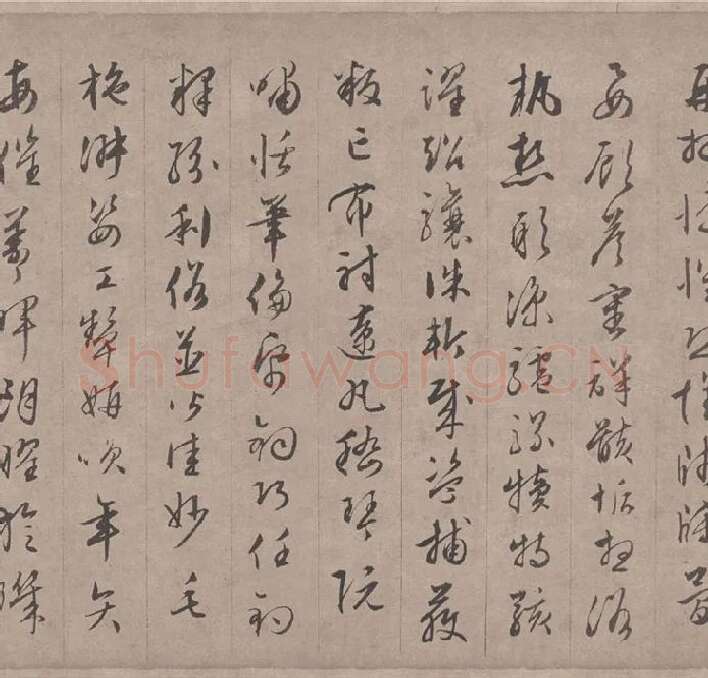 再拜悚懼恐惶牋牒簡
要顧答審詳骸垢想浴
執熱願涼驢騾犢特駭
躍超驤誅斬賊盜捕獲
叛亡布射遼丸嵇琴阮
嘯恬筆倫紙鈞巧任釣
釋紛利俗並皆佳妙毛
施淑姿工顰妍笑年矢
每催羲暉朗曜旋璣
Shufawang.CN